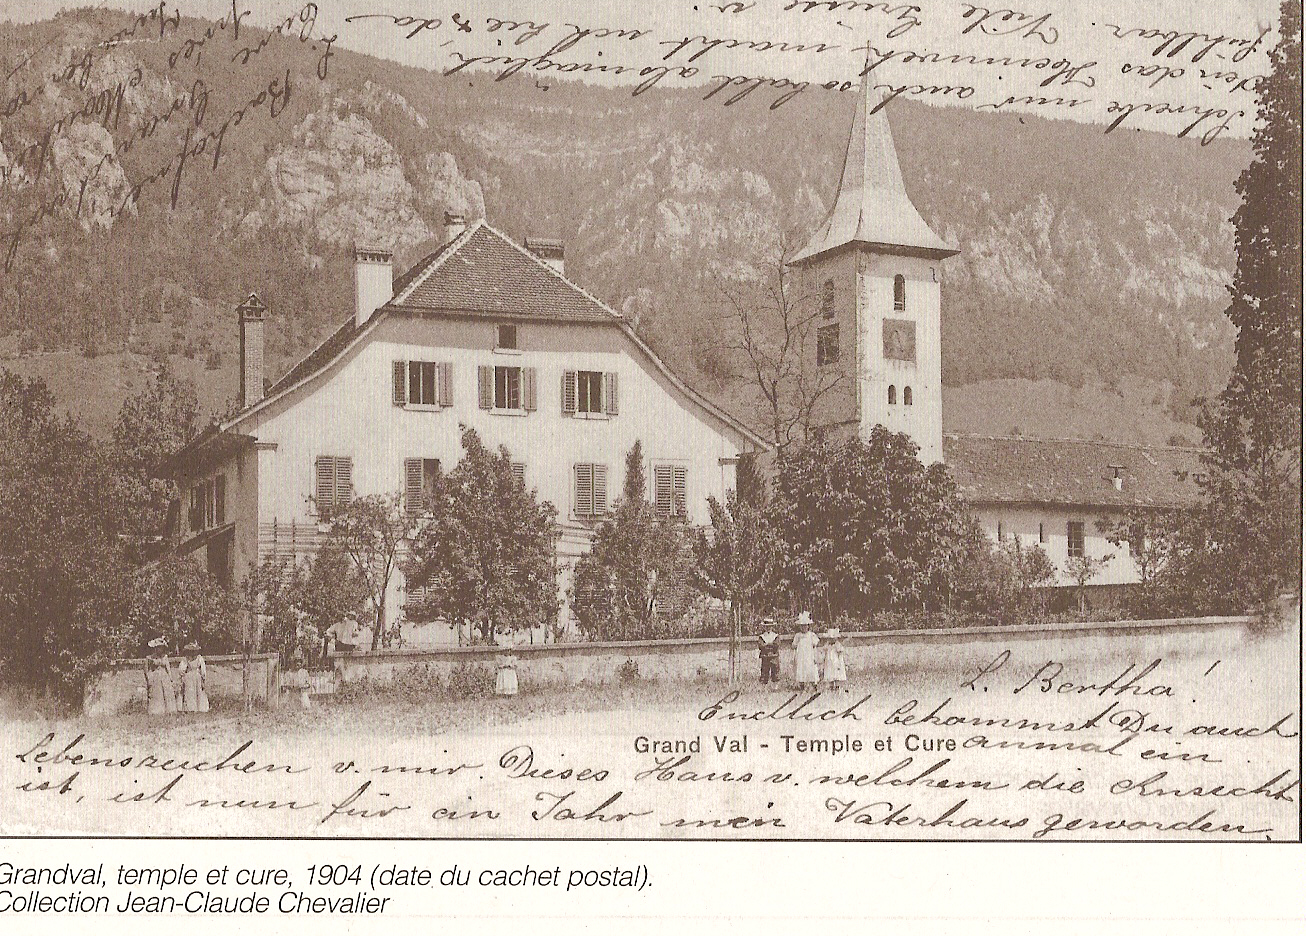 L. Bertha!
Endlich bekommst Du auch
Grand Val - Temple et Cure
anmal ein
Lebenszeichen v. mir. Dieses Haus v. welchem die Ansicht
ist, ist nun für ein Jahr mein Vaterhaus geworden.
Schreibe mir auch so bald als möglich,
das Heimweh macht sich hie & da
fühlbar. Viele Grüsse v.
Bachofner
Cure
près Moutier
Grandval, temple et cure, 1904 (date du cachet postal).
Collection Jean-Claude Chevalier